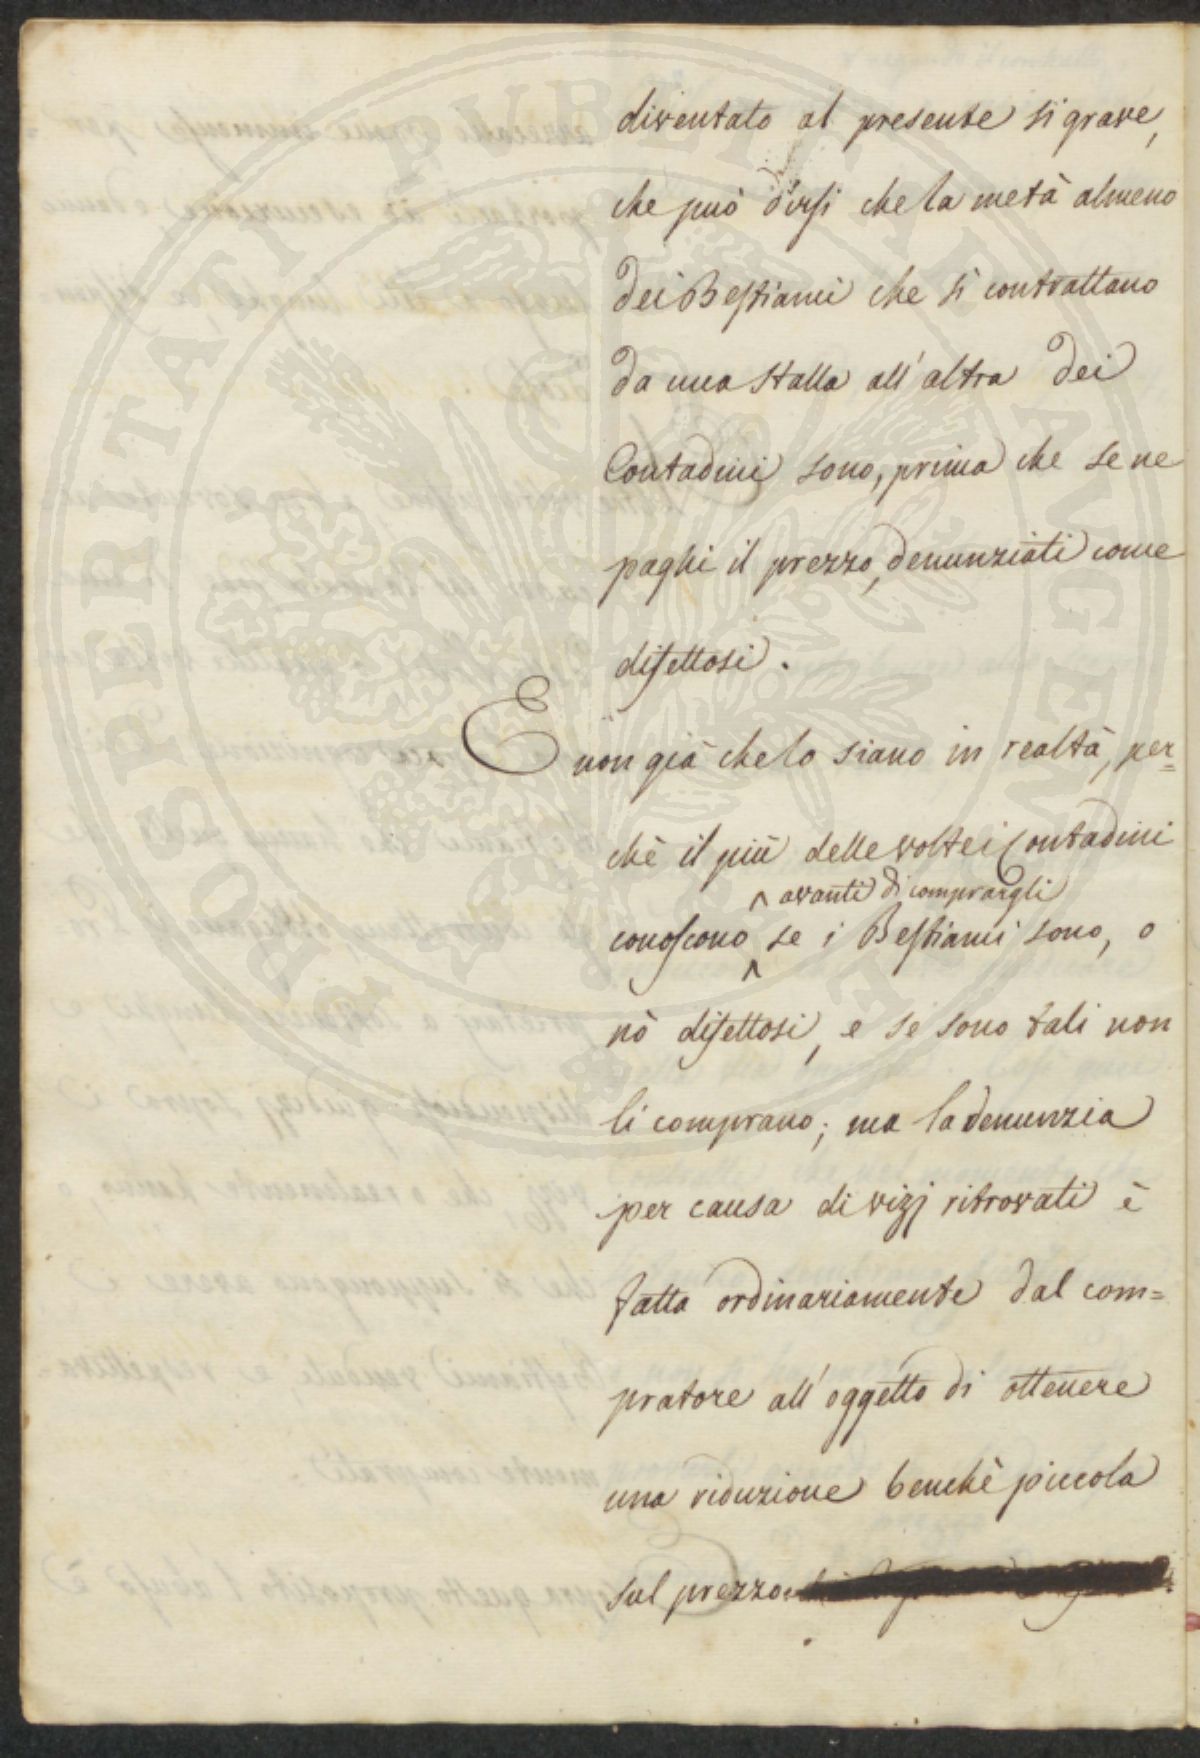 diventato al presente si grave,
che può dirsi che la metà almeno
dei Bestiami che si contrattano
da una stalla all'altra dei
Contadini sono, prima che se ne
paghi il prezzo, denunziati come
difettosi.
E non già che lo siano in realtà, per=
chè il più delle volte i Contadini
^ avanti di comprargli
conoscono ^ se i Bestiami sono, o
nò difettosi, e se sono tali non
li comprano; ma la denunzia
per causa di vizj ritrovati è
fatta ordinariamente dal com=
pratore all'oggetto di ottenere
una riduzione benchè piccola
sul prezzo
PROSPERITATI PUBLICAE AUGENDAE